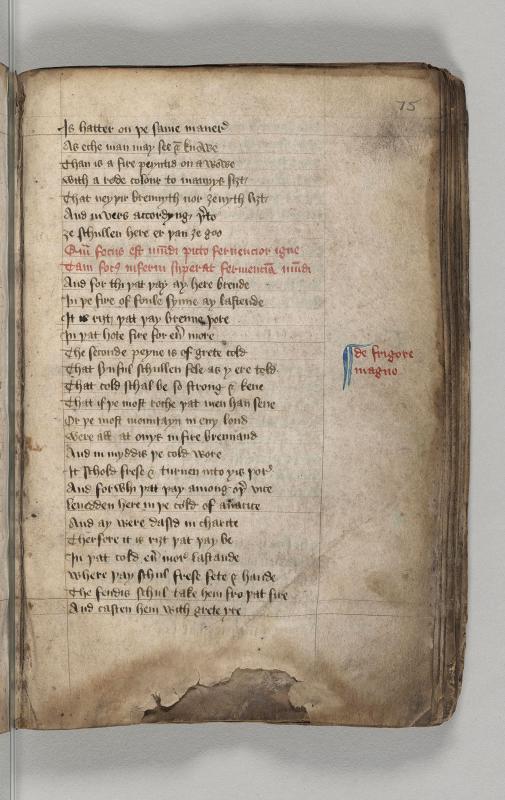 75
Is hatter on þe same maner
As eche man may see & knowe
Than is a fire peyntid on a wowe
With a rede colour to mannys siȝt
That neyþir brennyth nor ȝeuyth liȝt
And in vers accordyng þto
ȝe schullen here er þan ȝe goo
focus est mūdi picto feruencior igne
Tam inferni superat feruenciā mūdi
And for thi þat þay ay here brende
In þe fire of foule synne ay lastende
It is riȝt þat þay brenne þore
In þat hote fire for eūmore
The seconde peyne is of grete cold
That synful schullen fele as y ere told
That cold schal be so strong & kene
That if þe most roche þat men han sene
Or þe most mountayn in eny lond
Were all at onys in fire brennand
And in myddis þe cold wore
It schold frese & turnen into yis þor
And for whi þat þay among oþ vice
leuedden here in þe cold of
And ay were dasid in charite
Therfore it is riȝt þat þay be
In þat cold eū mor lastande
Where þay schul frese fete & hande
The fendis schul take hem fro þat fire
And casten hem with grete yre
de frigore
magno